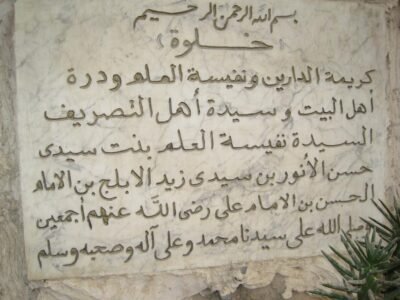 بسم الله الرحمن الرحيم
﴿ خلوة ﴾
كريمة الدارين ونفيسة العلم ودرة
اهل البيت وسيدة أهل التصريف
السيدة نفيسة العلم بنت سيدى
حسن الأنور بن سيدى زيد الابلج بن الامام
الحسن بن الامام على رضى الله عنهم أجمعين
وصل الله على سيدنا محمد وعلى آله وصحبه وسلم